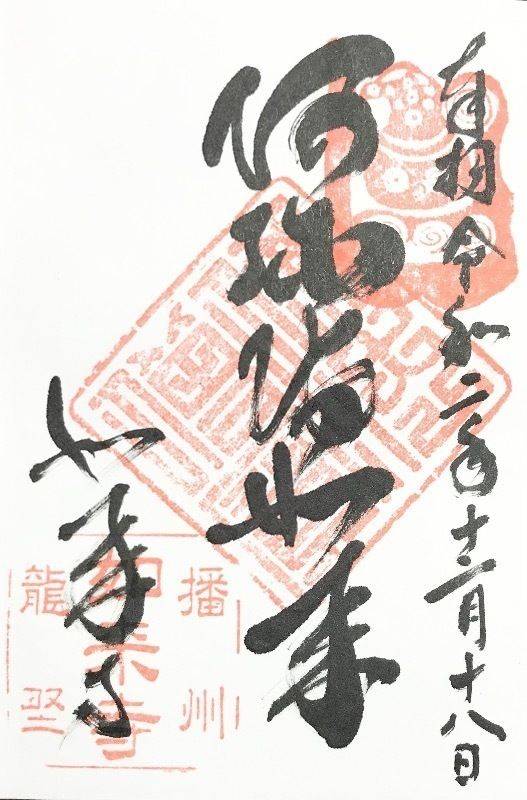 奉拝 令和二年十二月十八日
阿弥陀如来
如来寺
播州
如来寺
龍埜